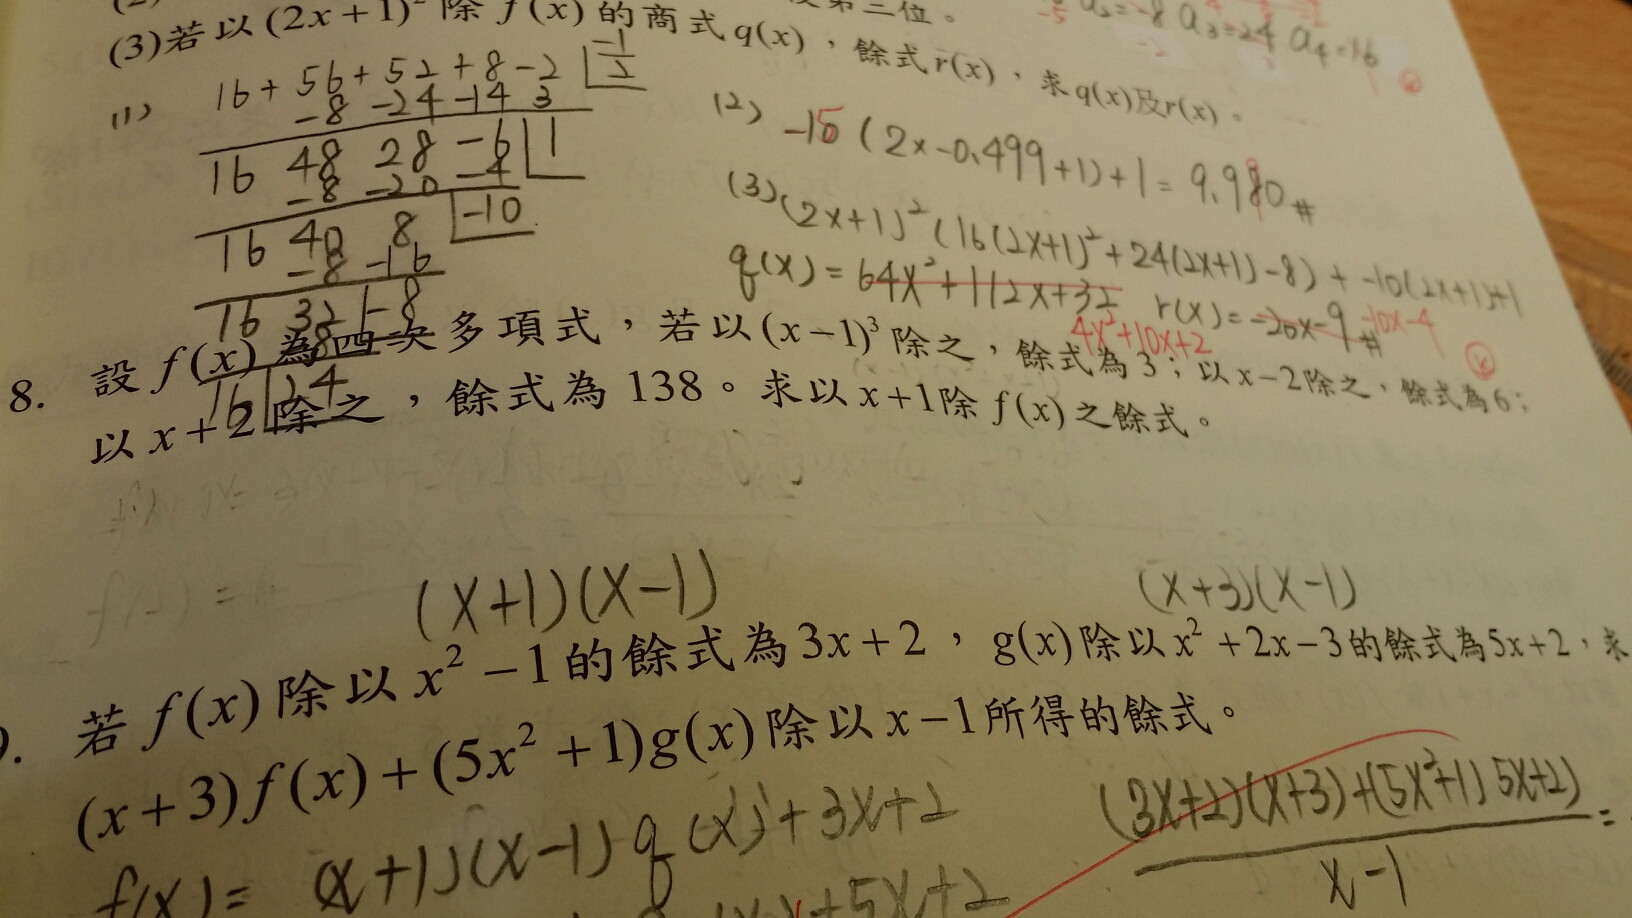 (3)若以(2x+1)² 除 f(x)的商式q(x),餘式r(x),求q(x)及r(x)。
a₃=24 a₄=16
(1) 16+56+52+8-2 -1/2
-8 -24 -14 3
16 48 28 -6 1
-8 -20 -4
16 40 8 -10
-8 -16
16 32 -8
-8
16 24
(2) -10(2x-0.499+1)+1=9.980#
(3)(2x+1)²(16(2x+1)²+24(2x+1)-8)+-10(2x+1)+1
q(x)=64x²+112x+32 r(x)=-20x-9#
8. 設f(x)為四次多項式,若以(x-1)³除之,餘式為3;以x-2除之,餘式為6;
以x+2除之,餘式為138。求以x+1除f(x)之餘式。
(x+1)(x-1) (x+3)(x-1)
若f(x)除以x²-1的餘式為3x+2,g(x)除以x²+2x-3的餘式為5x+2,求
(x+3)f(x)+(5x²+1)g(x)除以x-1所得的餘式。
(3x+2)(x+3)+(5x²+1)5x+2)
x-1 =
f(x)= (x+1)(x-1)q(x)+3x+2
+5x+2